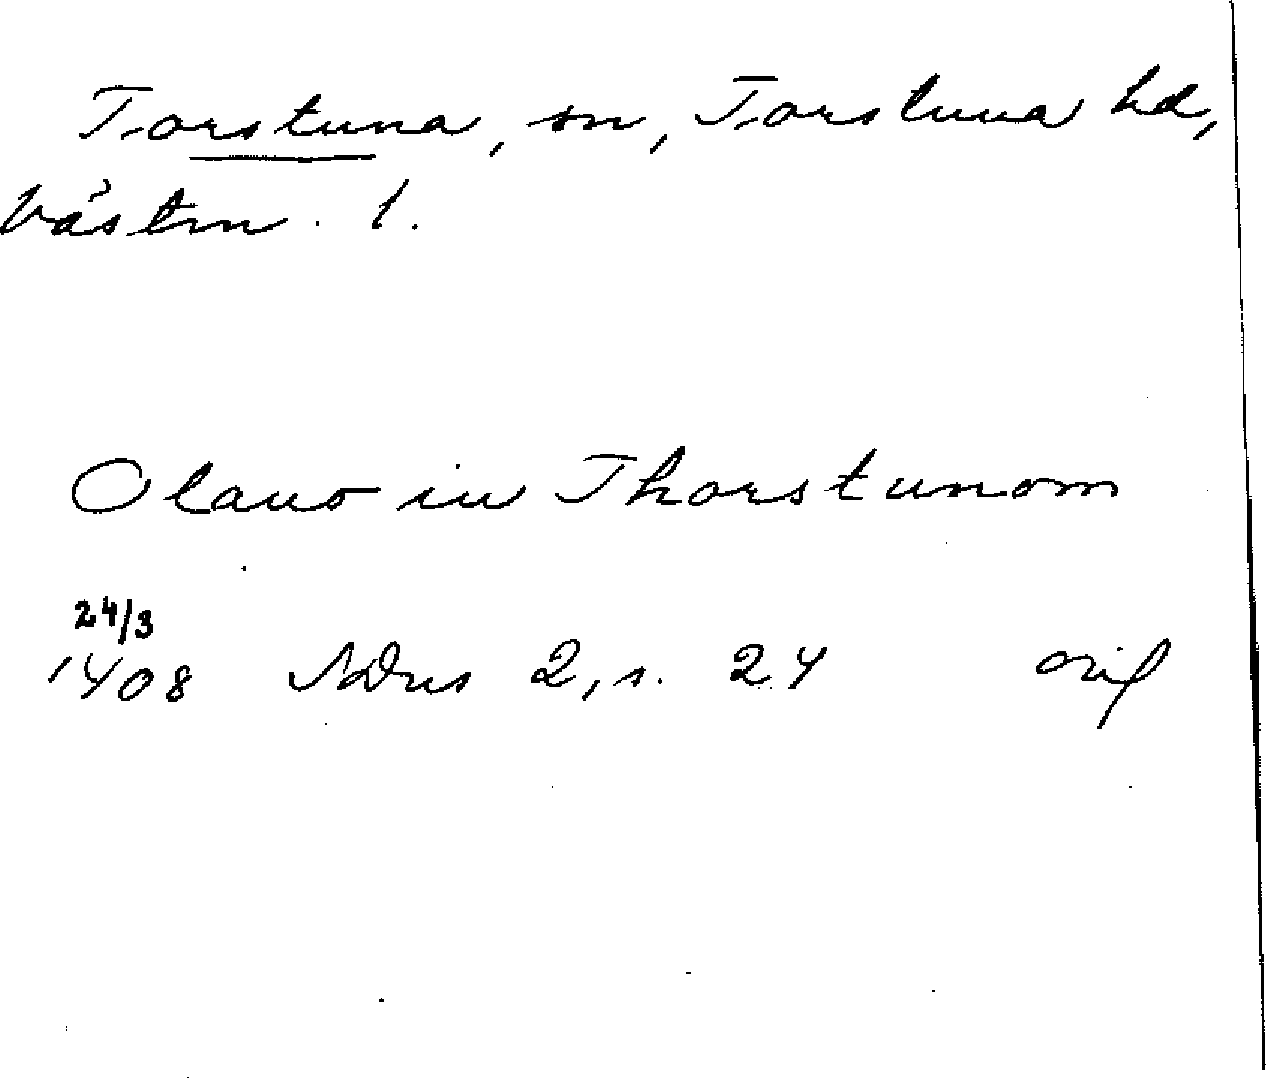 Torstuna, sn, Torstuna hd,
Västm. l.
Olauo in Thorstunom
24/3
1408 SDns 2, s. 24 orig